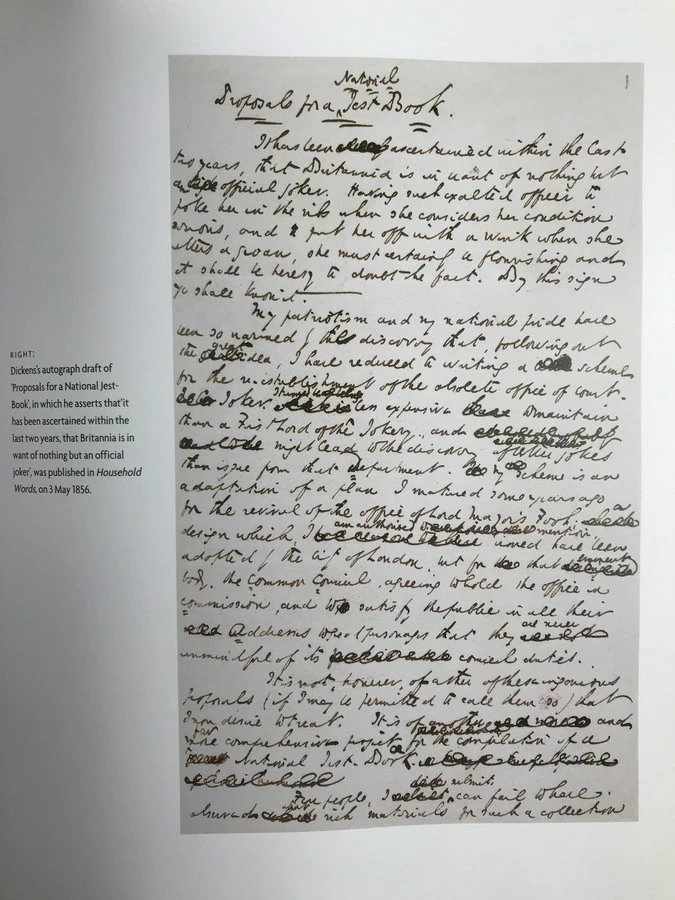 RIGHT:
Dickens's autograph draft of
'Proposals for a National Jest-
Book', in which he asserts that 'it
has been ascertained within the
last two years, that Britannia is in
want of nothing but an official
joker', was published in Household
Words, on 3 May 1856.
National
Proposals for a Jest-Book.
It has been ascertained within the last
two years, that Britannia is in want of nothing but
an official joker. Having such exalted officer to
poke her in the ribs when she considers her condition
serious, and to put her off with a wink when she
utters a groan, she must certainly be flourishing and
it shall be heresy to doubt the fact. By this sign
ye shall know it.
My patriotism and my national pride have
been so warmed by this discovery that following out
great
the idea, I have reduced to writing a scheme
for the re-establishment of the obsolete office of court
Joker. less expensive to maintain
than a First Lord of the Jokery, and
might lead to the discovery of better jokes
than issue from that department. My scheme is an
adaptation of a plan I matured some years ago
for the revival of the office of Lord Mayor's Fool: a
am authorised to mention
design which, I would have been
eminent
adopted by the City of London, but for that
body, the Common Council, agreeing to hold the office in
commission, and to satisfy the public in all their
are never
addresses to great personages that they
unmindful of its comical duties.
It is not, however, of either of these ingenious
proposals (if I may be permitted to call them so) that
I now desire to treat. It is of another and
far
more comprehensive project for the compilation of a
National Jest-Book.
submit
Few people, I can fail to have
observed what rich materials for such a collection